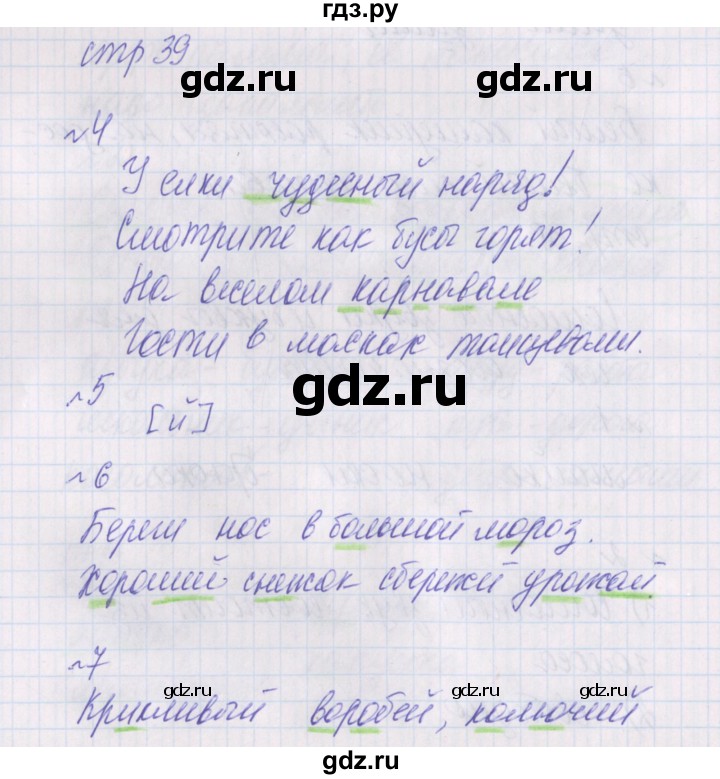 гдз.ру
стр 39
gdz.ru
gdz.ru
№4
У елки чудесный наряд!
Смотрите как бусы горят!
На веселом карнавале
Гости в масках танцевали.
gdz.ru
№5
[й]
№6
Береги нос в большой мороз.
Хороший снежок сбережёт урожай.
№7
gdz.ru
gdz.ru
gdz.ru
Крикливый воробей, колючий
gdz.ru
gdz.ru